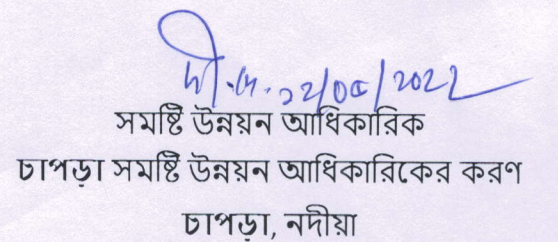 22/06/2022
সমষ্টি উন্নয়ন আধিকারিক
চাপড়া সমষ্টি উন্নয়ন আধিকারিকের করণ
চাপড়া, নদীয়া